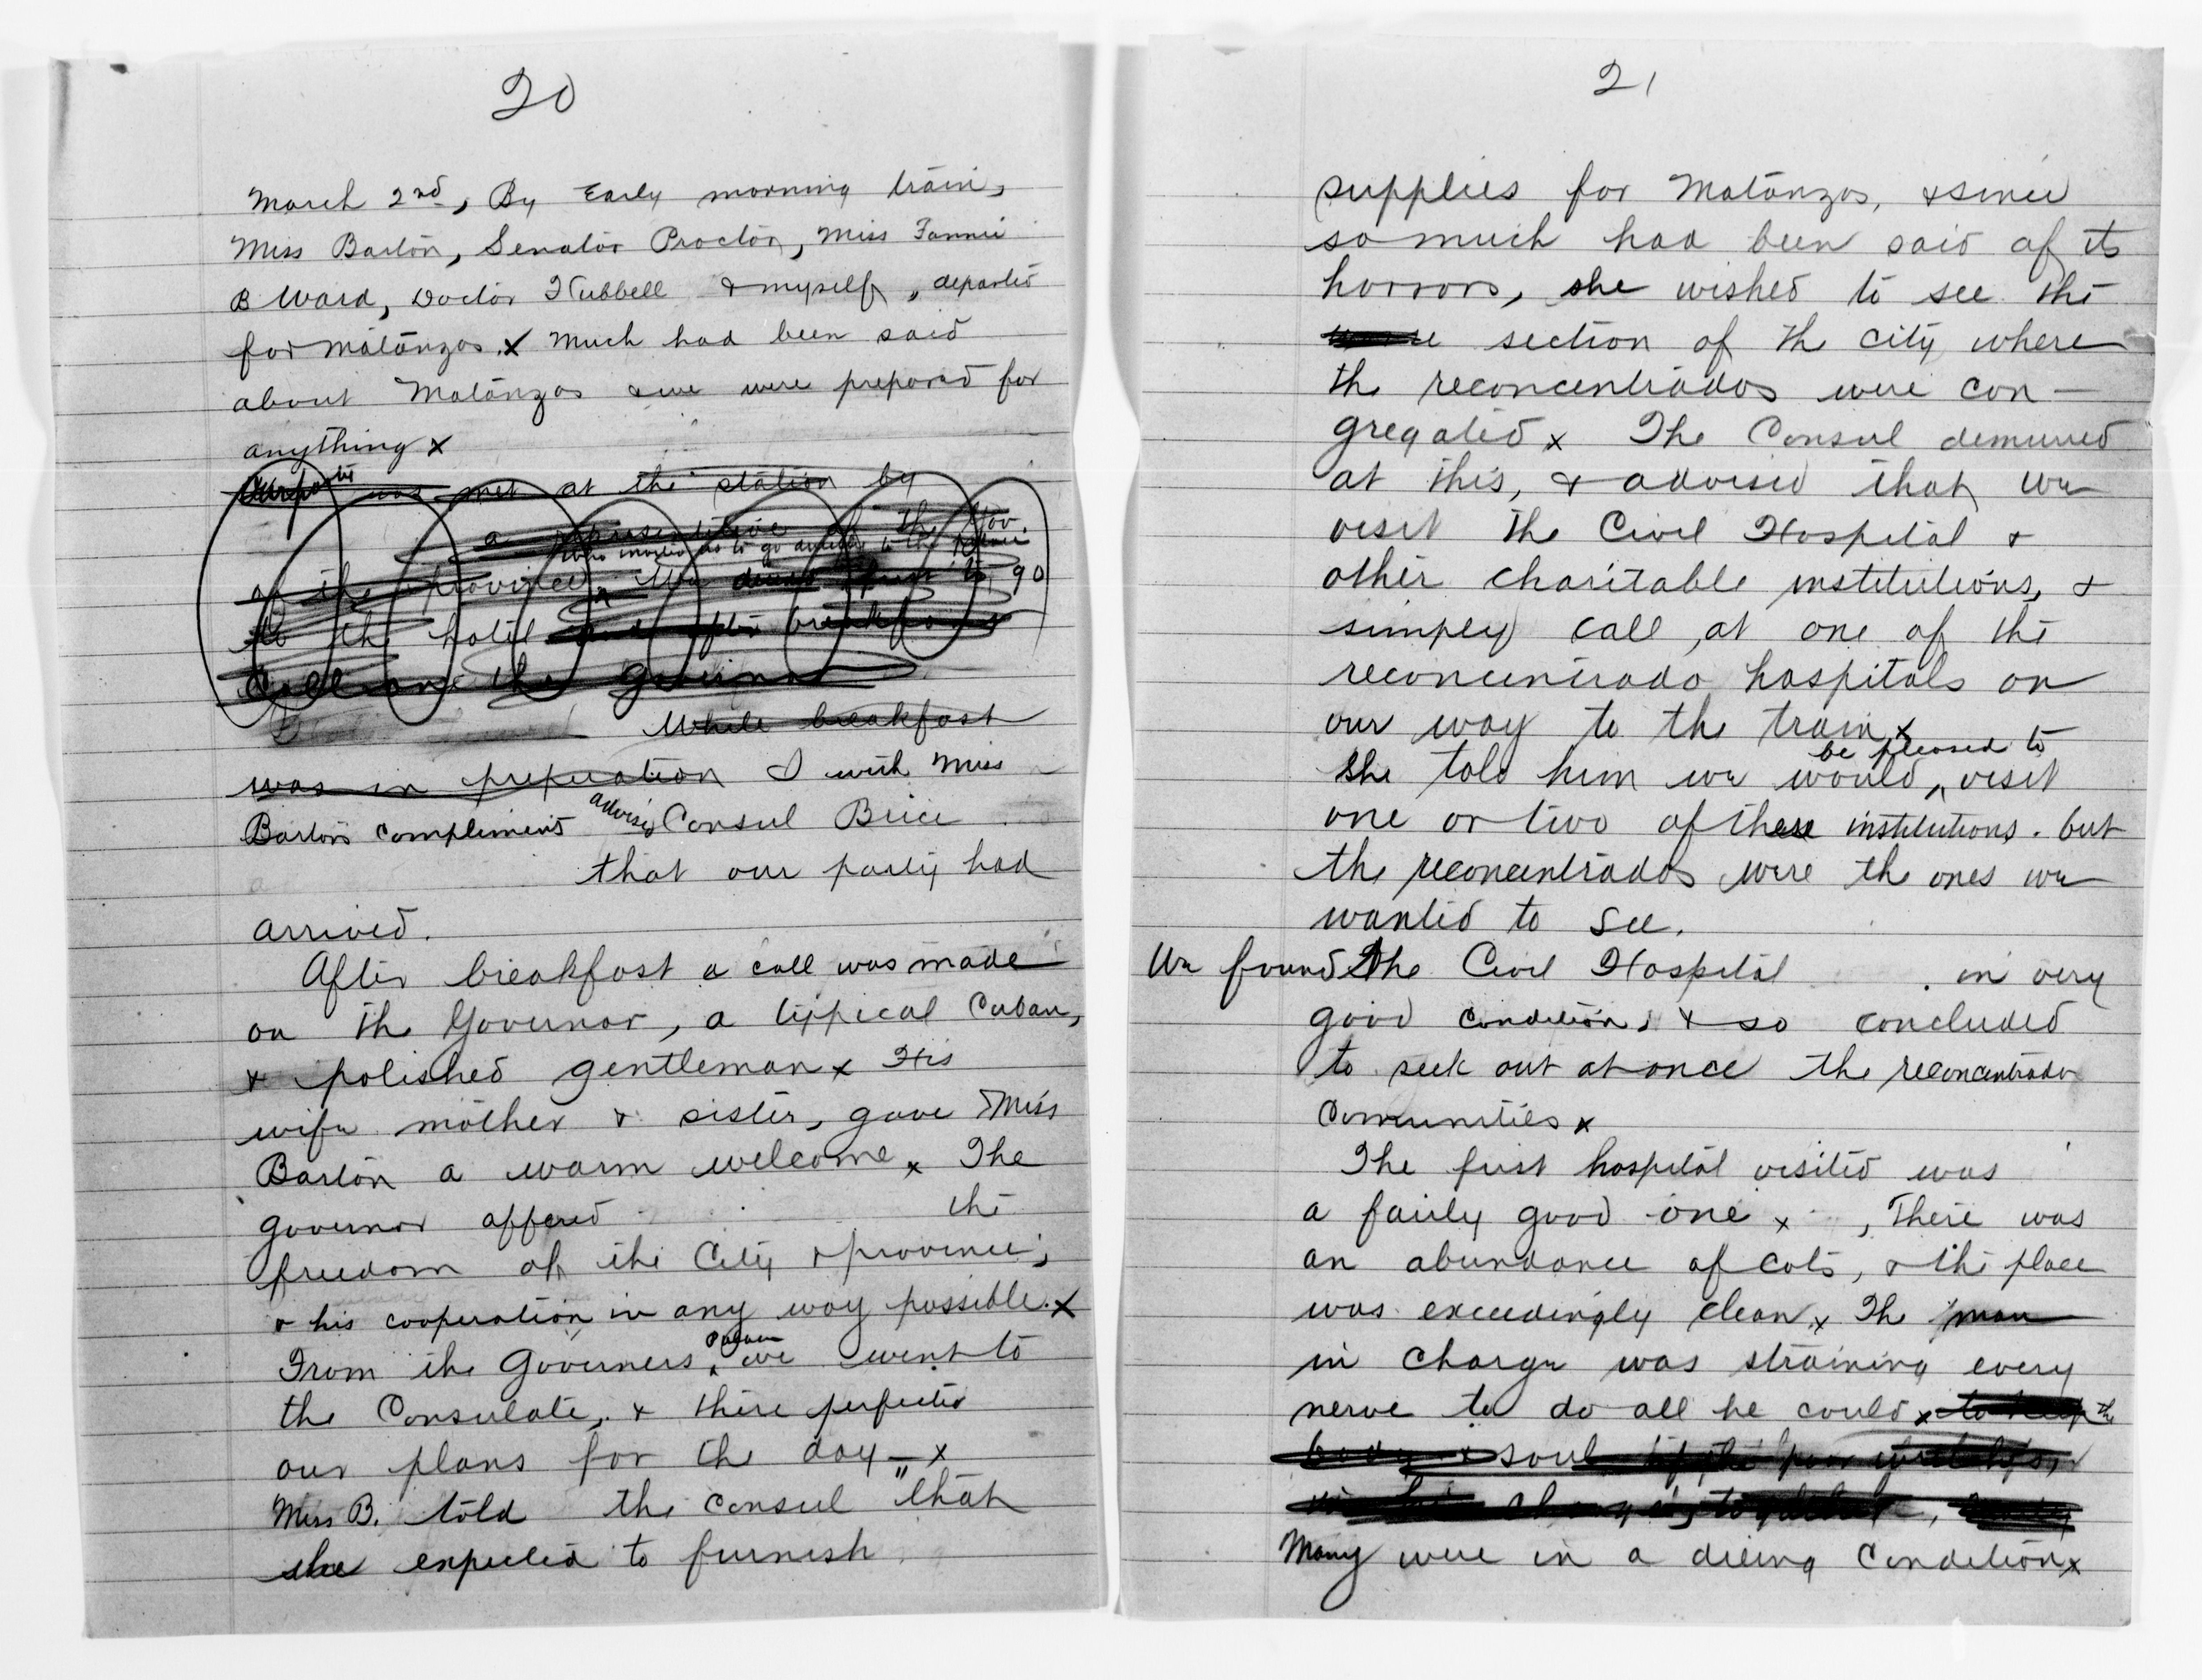 20
March 2nd, By Early morning train,
Miss Barton, Senator Proctor, Miss Fannie
B Ward, Doctor Hubbell & myself, departed
for Matanzas. x Much had been said
about Matanzas & we were prepared for
anything x
Our party was met at the station by
a representative of the Gov.
who invited us to go directly to the palace
of the province. We
go
to the hotel and after breakfast
Call on the Governor
While breakfast
was in preperation I with Miss
Bartons compliments advised Consul Brice
that our party had
arrived.
After breakfast a call was made
on the Governor, a typical Cuban,
& polished gentleman x His
wife mother & sister, gave Miss
Barton a warm welcome x The
governor offered the
freedom of the City & province,
& his cooperation in any way possible. x
From the Governers palace we went to
the Consulate, & there perfected
our plans for the day — x
Miss B. told the consul "that
she expected to furnish
21
supplies for Matanzas, & since
so much had been said of its
horrors, she wished to see the
section of the city where
the reconcentrados were con-
gregated x The Consul demurred
at this, & advised that we
visit the Civil Hospital &
other charitable institutions, &
simply call, at one of the
reconcentrado hospitals on
our way to the train x
be pleased to
She told him we would, visit
one or two of these institutions. but
the reconcentrados were the ones we
wanted to see.
We found the Civil Hospital in very
good condition, & so concluded
to seek out at once the reconcentrado
Comunities x
The first hospital visited was
a fairly good one x, There was
an abundance of cots, & the place
was exceedingly clean x The man
in charge was straining every
nerve to do all he could x to keep the
body & soul of the poor wretches,
in his charge, together,
Many were in a dieing Condition x